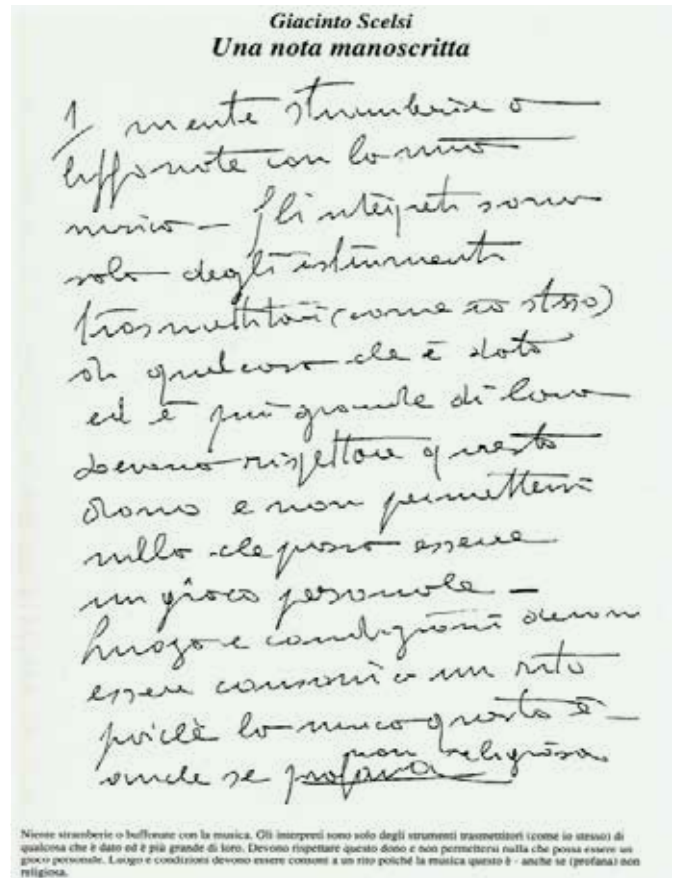 Giacinto Scelsi
Una nota manoscritta
1/ niente stramberie o
buffonate con la mia
musica — Gli interpreti sono
solo degli istrumenti
trasmettitori (come io stesso)
di qualcosa che è dato
ed è più grande di loro
devono rispettare questo
dono e non permettersi
nulla che possa essere
un gioco personale —
Luogo e condizioni devono
essere consoni a un rito
poichè la musica questo è —
non religiosa
anche se profana
Niente stramberie o buffonate con la musica. Gli interpreti sono solo degli strumenti trasmettitori (come io stesso) di
qualcosa che è dato ed è più grande di loro. Devono rispettare questo dono e non permettersi nulla che possa essere un
gioco personale. Luogo e condizioni devono essere consoni a un rito poiché la musica questo è - anche se (profana) non
religiosa.